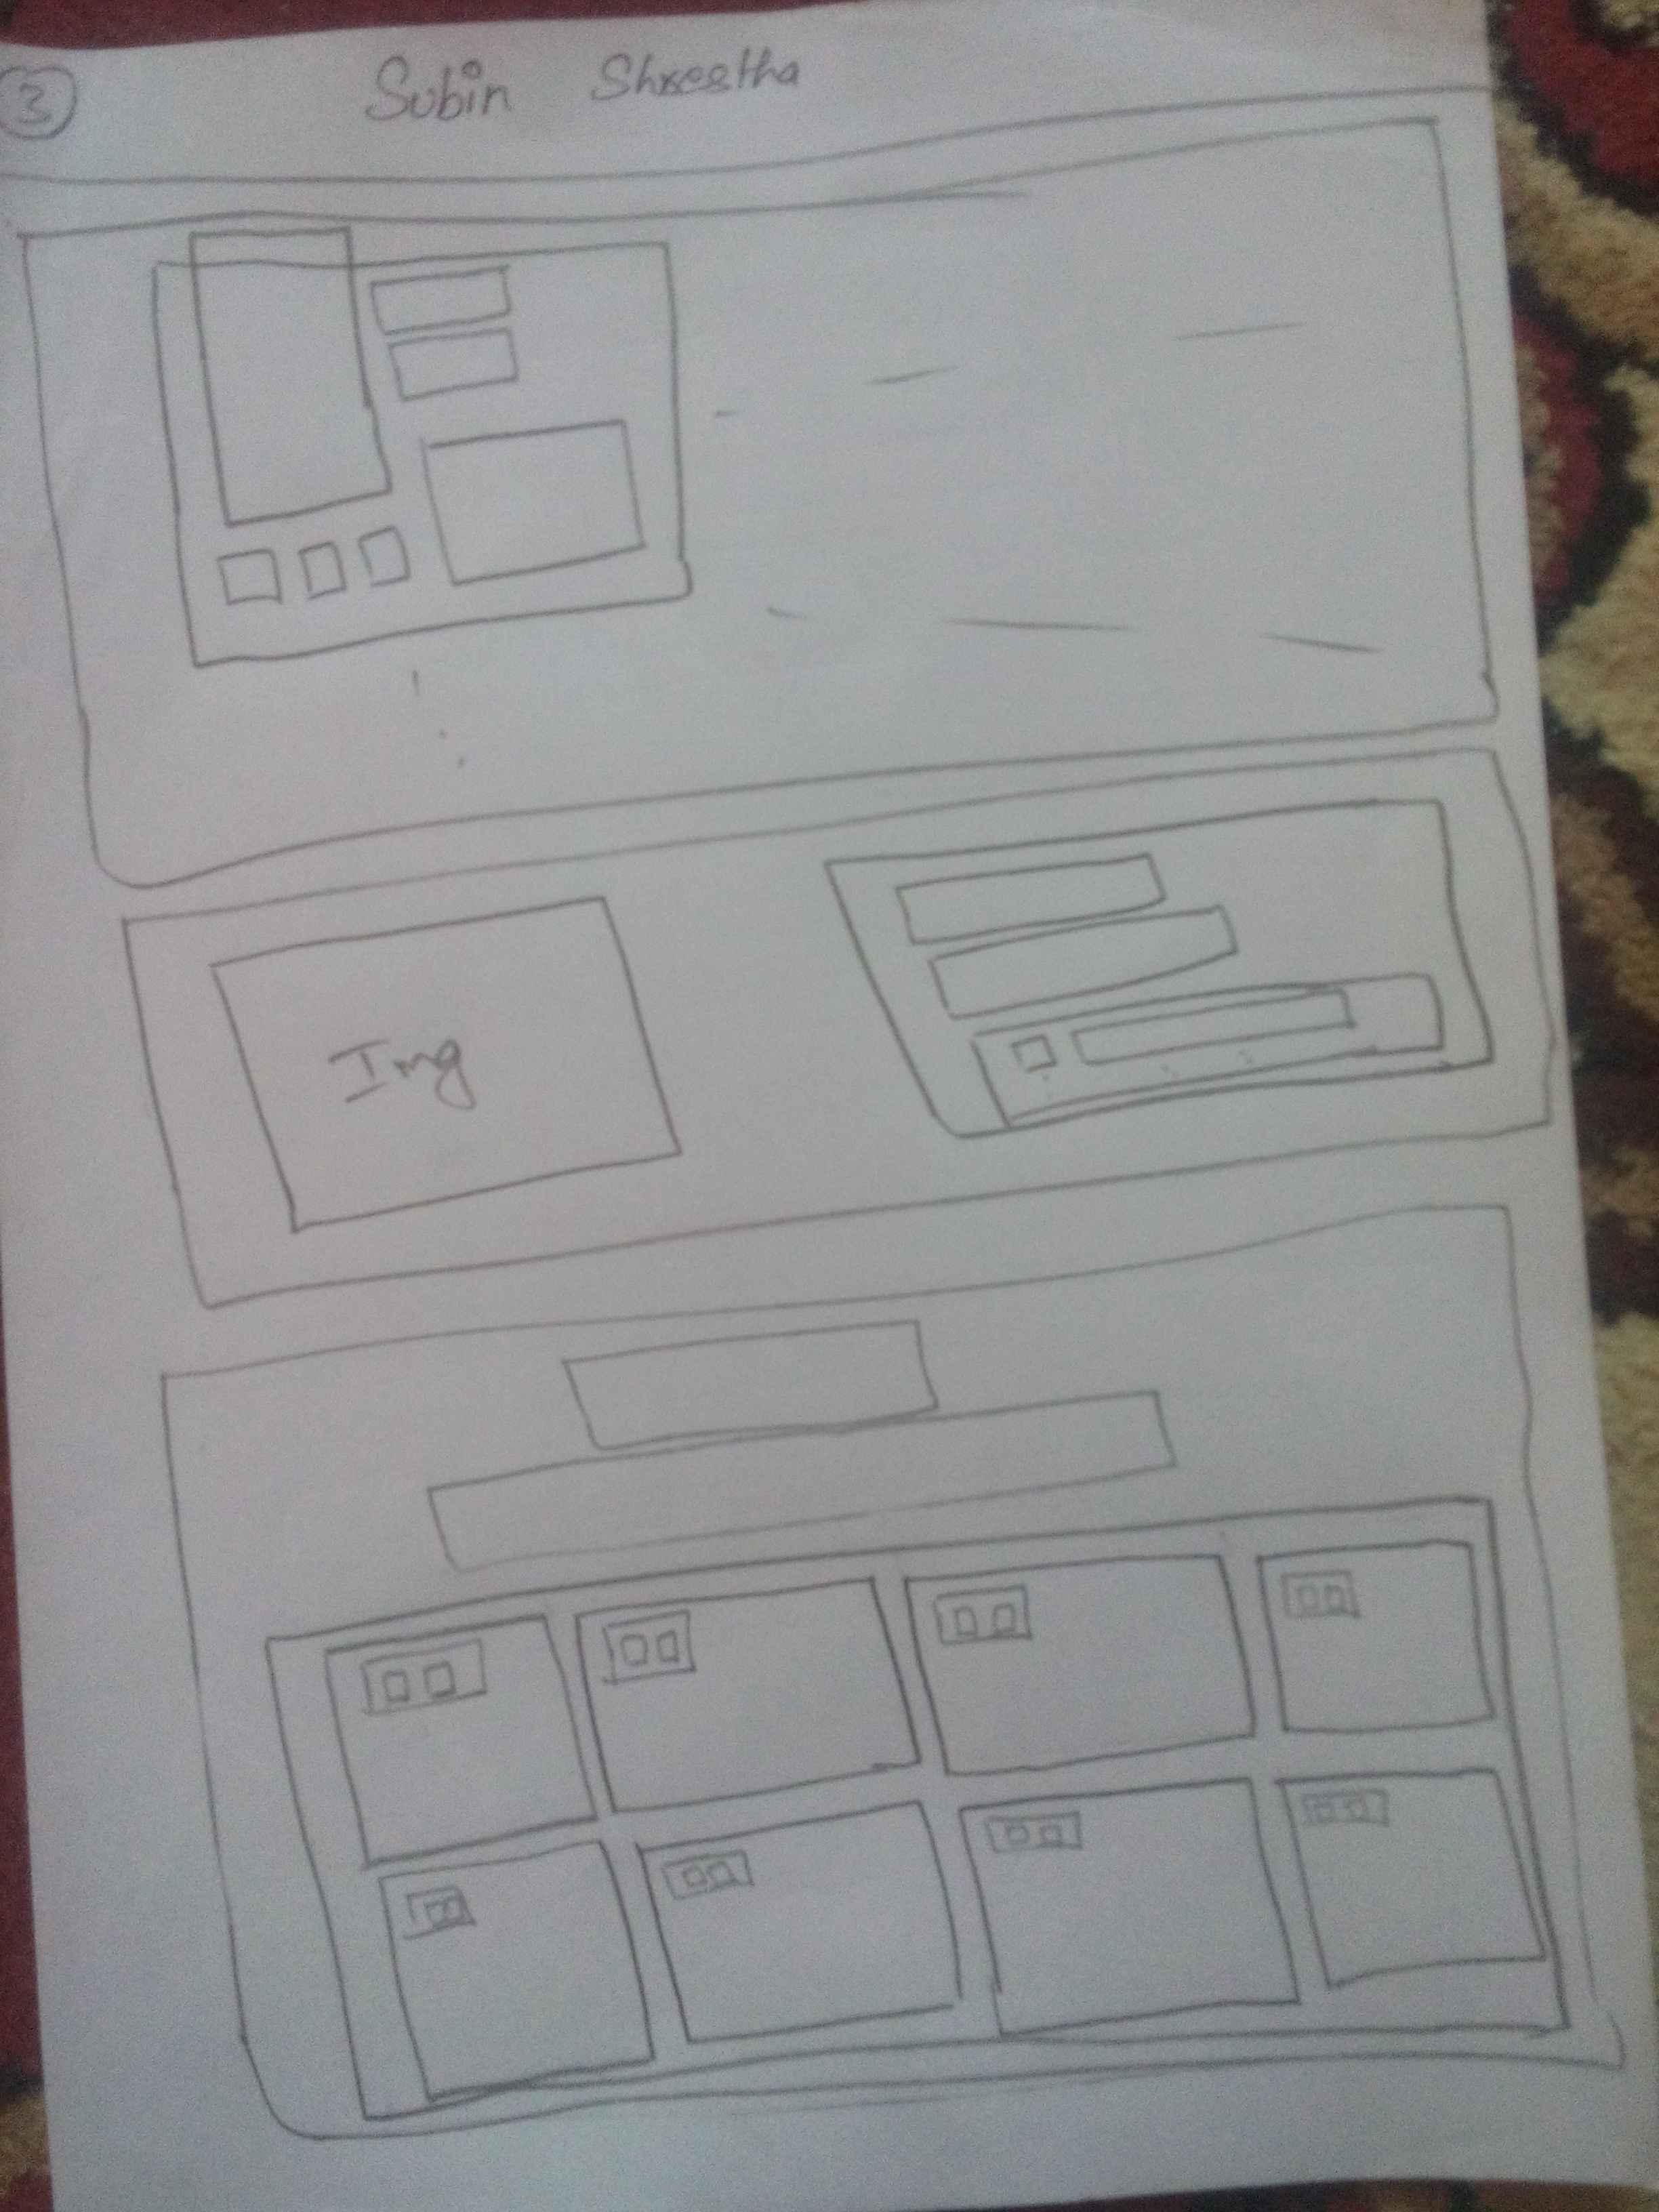 3 Subin Shrestha
Img